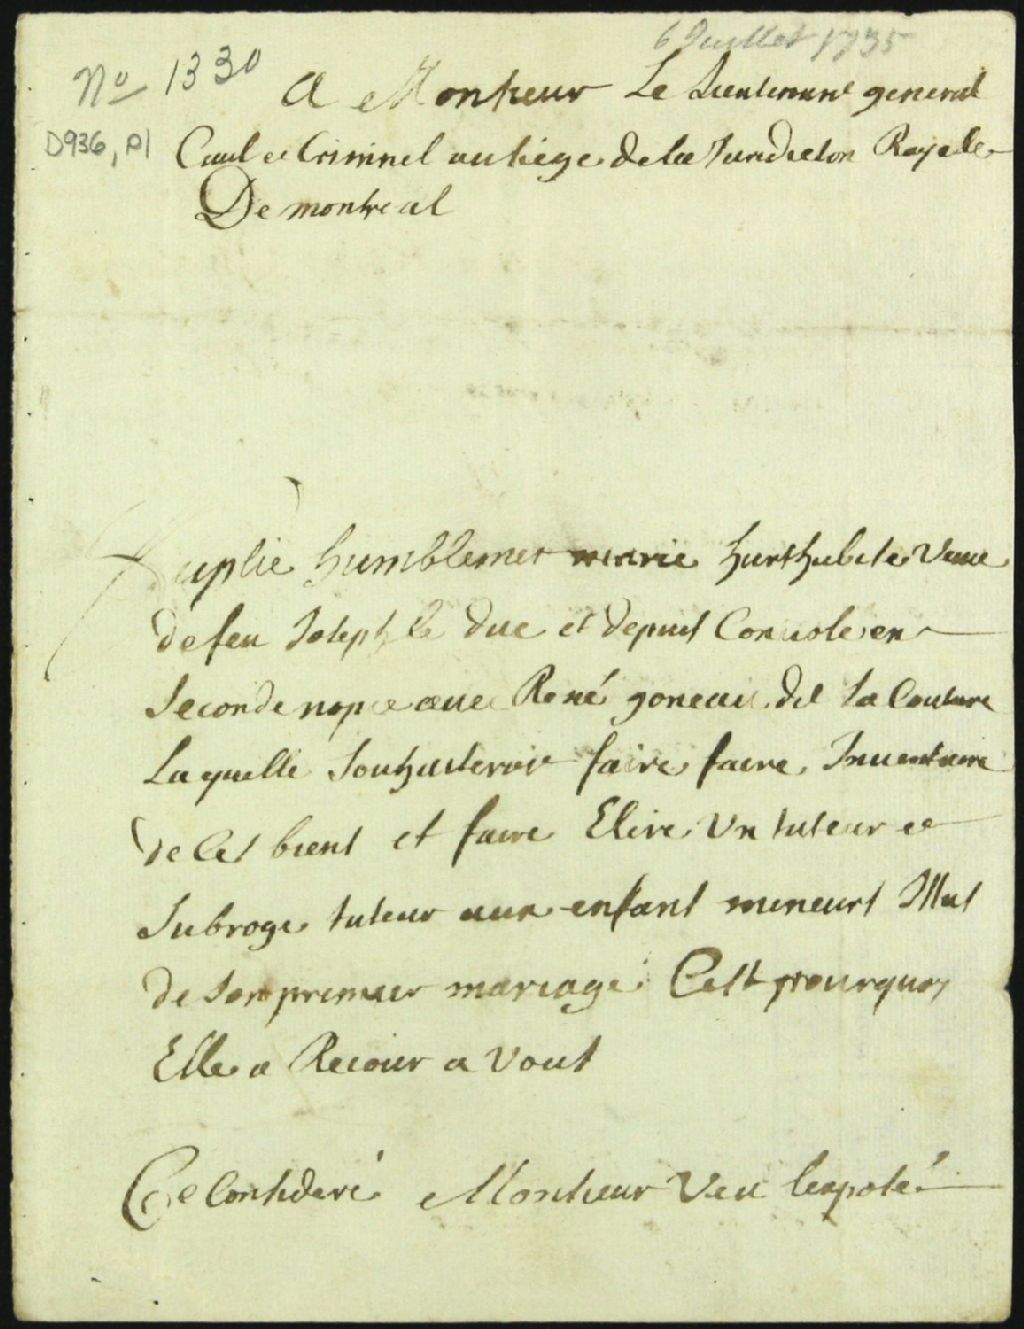 6 Juillet 1735
No 1330
A Monsieur Le Lieutenant general
D936, P1
Ciuil et Criminel au siege de la Juridiction Royalle
De montreal
Suplie humblemet marie hurthubise Veuue
de feu Joseph le duc et depuis Conuole en
seconde nopce auec René goneau dit la Couture
Laquelle souhaiteroit faire faire Inuentaire
de ces biens et faire Elire Vn tuteur et
subroge tuteur aux enfant mineurs Issus
de son premier mariage Cest pourquoy
Elle a Recour a Vous
Ce Consideré Monsieur Veu lexposé